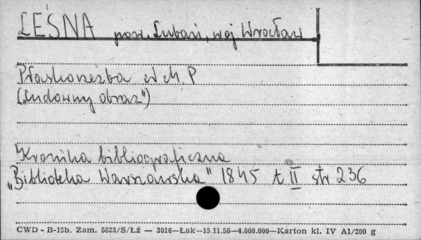 LEŚNA pow. Lubań, woj Wrocław
Płaskorzeźba N.M.P
(cudowny obraz")
Kronika bibliograficzna
„Biblioteka Warszawska" 1845 t II str 236
CWD - B-15b. Zam. 5323/S/Łź — 3016—Łak—15.11.56—4.000.000—Karton kl. IV A1/200 g